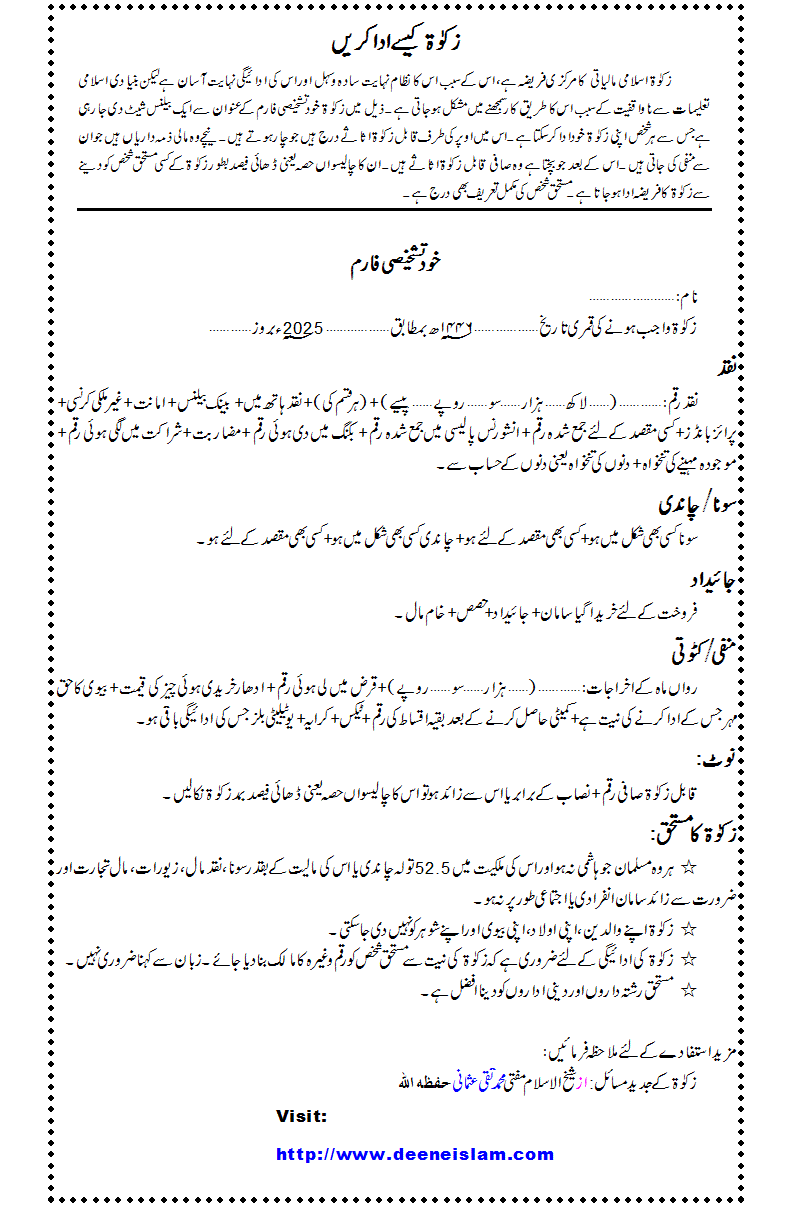 زکوٰۃ کیسے ادا کریں
زکوٰۃ اسلامی مالیاتی کا مرکزی فریضہ ہے، اس کے سبب اس کا نظام نہایت سادہ و سہل اور اس کی ادائیگی نہایت آسان ہے لیکن بنیادی اسلامی
تعلیمات سے ناواقفیت کے سبب اس کا طریق کار سمجھنے میں مشکل ہو جاتی ہے۔ ذیل میں زکوٰۃ خود تشخیصی فارم کے عنوان سے ایک بیلنس شیٹ دی جا رہی
ہے جس سے ہر شخص اپنی زکوٰۃ خود ادا کر سکتا ہے۔ اس میں اوپر کی طرف قابل زکوٰۃ اثاثے درج ہیں جو چار ہوتے ہیں۔ نیچے وہ مالی ذمہ داریاں ہیں جو ان
سے منفی کی جاتی ہیں۔ اس کے بعد جو بچتا ہے وہ صافی قابل زکوٰۃ اثاثے ہیں۔ ان کا چالیسواں حصہ یعنی ڈھائی فیصد بطور زکوٰۃ کے کسی مستحق شخص کو دینے
سے زکوٰۃ کا فریضہ ادا ہو جاتا ہے۔ مستحق شخص کی مکمل تعریف بھی درج ہے۔
خود تشخیصی فارم
نام:........................
زکوٰۃ واجب ہونے کی قمری تاریخ..................۱۴۴۶ھ بمطابق..................2025ء بروز............
نقد
نقد رقم:............(......لاکھ......ہزار......سو......روپے......پیسے)+(ہر قسم کی)+نقد ہاتھ میں+ بینک بیلنس+ امانت+ غیر ملکی کرنسی+
پرائز بانڈز+کسی مقصد کے لئے جمع شدہ رقم+ انشورنس پالیسی میں جمع شدہ رقم+ بکنگ میں دی ہوئی رقم+ مضاربت+شراکت میں لگی ہوئی رقم+
موجودہ مہینے کی تنخواہ+ دنوں کی تنخواہ یعنی دنوں کے حساب سے۔
سونا/چاندی
سونا کسی بھی شکل میں ہو+کسی بھی مقصد کے لئے ہو+ چاندی کسی بھی شکل میں ہو+کسی بھی مقصد کے لئے ہو۔
جائیداد
فروخت کے لئے خریدا گیا سامان+ جائیداد+حصص+ خام مال۔
منفی/کٹوتی
رواں ماہ کے اخراجات:............(......ہزار......سو......روپے)+قرض میں لی ہوئی رقم+ ادھار خریدی ہوئی چیز کی قیمت+ بیوی کا حق
مہر جس کے ادا کرنے کی نیت ہے+کمیٹی حاصل کرنے کے بعد بقیہ اقساط کی رقم+ٹیکس+ کرایہ+ یوٹیلیٹی بلز جس کی ادائیگی باقی ہو۔
نوٹ:
قابل زکوٰۃ صافی رقم+ نصاب کے برابر یا اس سے زائد ہو تو اس کا چالیسواں حصہ یعنی ڈھائی فیصد بمد زکوٰۃ نکالیں۔
زکوٰۃ کا مستحق:
☆ ہر وہ مسلمان جو ہاشمی نہ ہو اور اس کی ملکیت میں 52.5 تولہ چاندی یا اس کی مالیت کے بقدر سونا، نقد مال، زیورات، مال تجارت اور
ضرورت سے زائد سامان انفرادی یا اجتماعی طور پر نہ ہو۔
☆ زکوٰۃ اپنے والدین، اپنی اولاد، اپنی بیوی اور اپنے شوہر کو نہیں دی جا سکتی۔
☆ زکوٰۃ کی ادائیگی کے لئے ضروری ہے کہ زکوٰۃ کی نیت سے مستحق شخص کو رقم وغیرہ کا مالک بنا دیا جائے۔ زبان سے کہنا ضروری نہیں۔
☆ مستحق رشتہ داروں اور دینی اداروں کو دینا افضل ہے۔
مزید استفادے کے لئے ملاحظہ فرمائیں:
زکوٰۃ کے جدید مسائل: از شیخ الاسلام مفتی محمد تقی عثمانی حفظه الله
Visit:
http://www.deeneislam.com